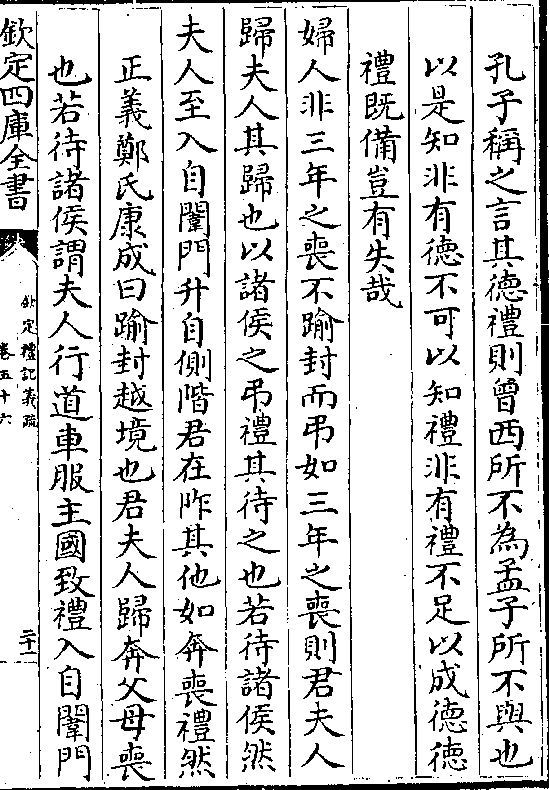 孔子稱之言其德禮則曾西所不為孟子所不與也
以是知非有德不可以知禮非有禮不足以成德德
禮既備豈有失哉
婦人非三年之喪不踰封而弔如三年之喪則君夫人
歸夫人其歸也以諸侯之弔禮其待之也若待諸侯然
夫人至入自闈門升自側階君在阼其他如奔喪禮然
正義鄭氏康成曰踰封越境也君夫人歸奔父母喪
也若待諸侯謂夫人行道車服主國致禮入自闈門
欽定四庫全書
欽定禮記義疏
卷五十六
二十一